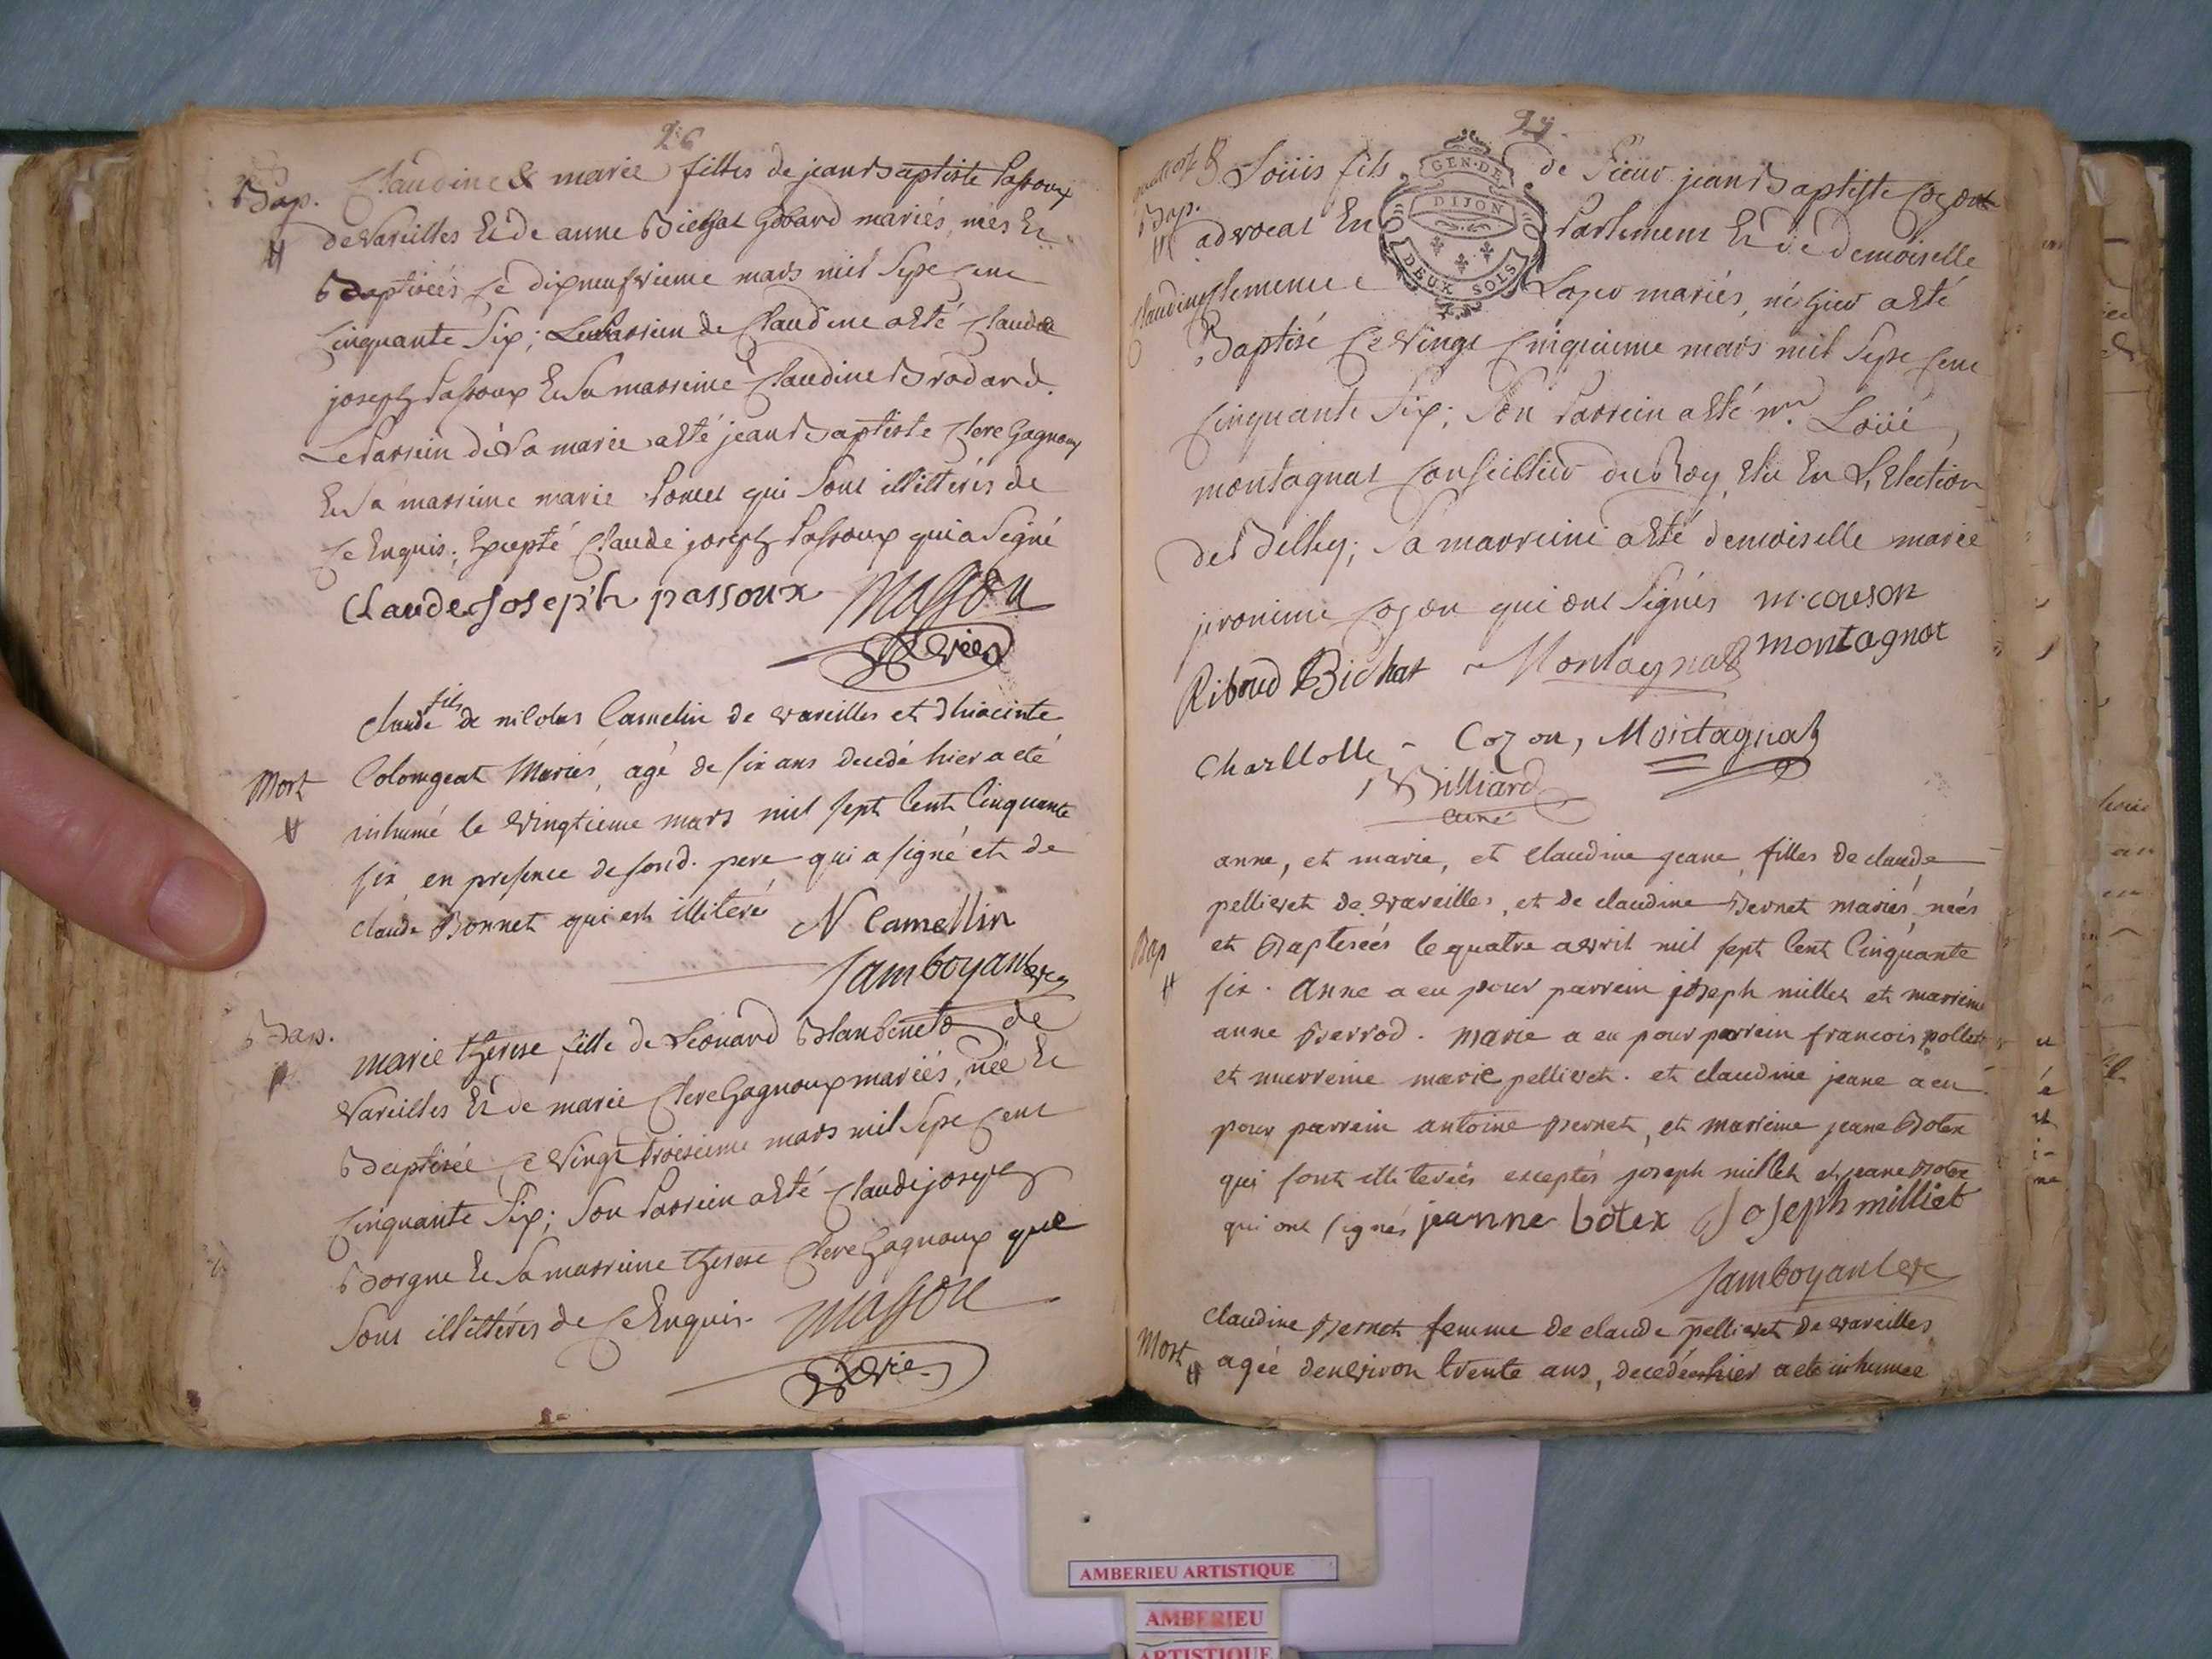 26
Bap. Claudine & marie filles de jean Baptiste Passoux
de Vareilles Et de anne Bichat Gobard mariés, nées Et
Baptisées Ce dixneufvieme mars mil Sept Cent
Cinquante Six; Le Parrein de Claudine a Eté Claude
joseph Passoux Et Sa marreine Claudine Brodard.
Le Parrein de La marie a Eté jean Baptiste Clere Gagnoux
Et Sa marreine marie Poncet qui Sont illittérés de
Ce Enquis; Excepté Claude joseph Passoux qui a Signé
Claude Joseph passoux Masson
Vic.
Claude fils de nicolas Camelin de vareilles et dhiacinte
Mort Colomgeat Mariés, agé de six ans decedé hier a eté
inhumé le vingtieme mars mil sept Cent Cinquante
six en presence de sond. pere qui a signé et de
claude Bonnet qui est illiteré N Camellin
Jamboyant vic
Bap. marie therese fille de Léonard Blanbeneto de
Vareilles Et de marie Clere Gagnoux mariés, née Et
Baptisée Ce Vingt troisieme mars mil Sept Cent
Cinquante Six; Son Parrein a Eté Claude joseph
Borgne Et Sa marreine therese Clere Gagnoux que
Sont illittérés de Ce Enquis. Masson
Vic.
27.
Loüis fils de Sieur jean Baptiste Cozon
Bap. advocat En Parlement Et de demoiselle
Claudine Clemence Loyer mariés, né hier a Eté
Baptisé Ce Vingt Cinquieme mars mil Sept Cent
Cinquante Six; Son Parrein a Eté mr. Loüi
montagnat Conseillier du Roy, Elu En L'Election
de Belley; Sa marreine a Eté demoiselle marie
jeronime Cozon qui ont Signés m. couson
Riboud Bichat Montagnat montagnat
Charllotte Cozon, Montagnat
Billiard
curé
GEN. DE
DIJON
DEUX SOLS
anne, et marie, et Claudine jeane, filles de claude
pellievet de vareilles, et de claudine Vernet mariés nées
Bap et Baptisées le quatre avril mil sept Cent Cinquante
six. Anne a eu pour parrein joseph millet et marreine
anne Perrod. Marie a eu pour parrein francois pollet
et marreine marie pellievet. et claudine jeane a eu
pour parrein antoine Vernet, et marreine jeane Botex
qui sont illiterés exceptés joseph millet et jeane Botex
qui ont signés jeanne botex Joseph milliet
Jamboyant vic
Claudine Vernet femme de claude pellievet de vareilles
Mort agée denviron trente ans, decedée hier a eté inhumée
AMBERIEU ARTISTIQUE
AMBERIEU
ARTISTIQUE